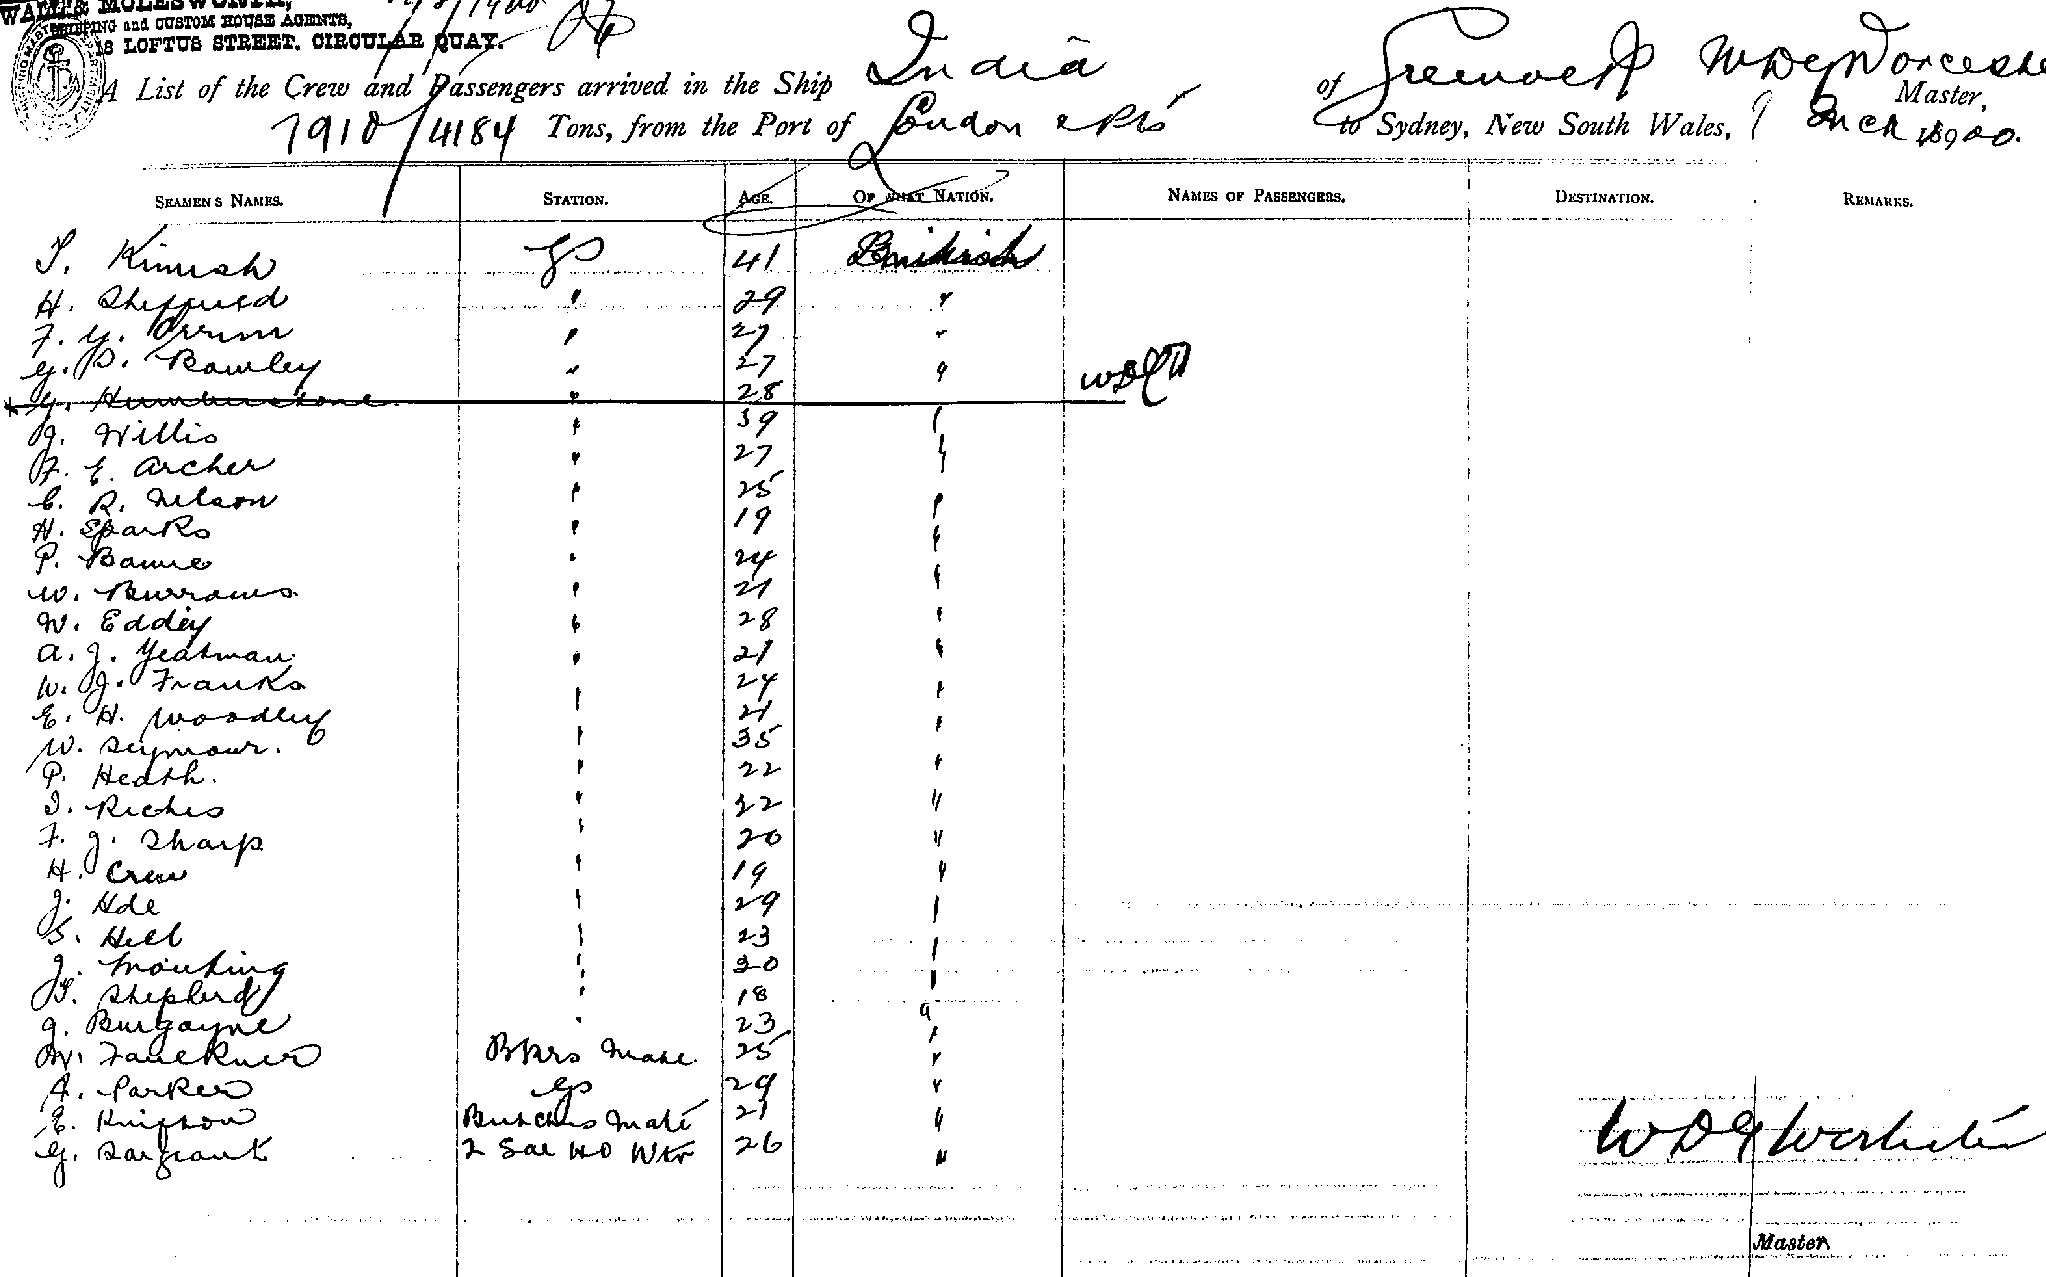 WALLIS MOLESWORTH,
SHIPPING and CUSTOM HOUSE AGENTS,
18 LOFTUS STREET. CIRCULAR QUAY.
A List of the Crew and Passengers arrived in the Ship India of Greenock W D G Worcester Master,
7910/4184 Tons, from the Port of London & Pts to Sydney, New South Wales, 1900.
SEAMENS NAMES. STATION. AGE. OF WHAT NATION. NAMES OF PASSENGERS. DESTINATION. REMARKS.
T. Kinnish GS 41 British
H. Sheffield " 29 "
F. G. Orrum " 27 "
G. D. Rowley " 27 "
G. Humberstone " 28
J. Willis " 39 "
F. E. Archer " 27 "
C. R. Nelson " 25 "
H. Sparks " 19 "
P. " 24 "
W. Burrows " 21 "
W. Eddey " 28 "
A. J. Yeatman " 21 "
W. J. Franks " 24 "
E. H. Woodley " 21 "
W. Seymour. " 35
P. Heath. " 22 "
Riches " "
F. J. Sharp " 20 "
H. Crew " 19 "
J. Ade " 29 "
S. Hill " 23 "
J. "
Shepherd " 18 "
G. Burgoyne " 23 "
W. Faulkner Bkrs Mate 25 "
A. Parker GS 29 "
E. Butchers Mate 21 "
G. Sargeant 2 Sal HD Wtr 26 "
W D G Worcester
Master